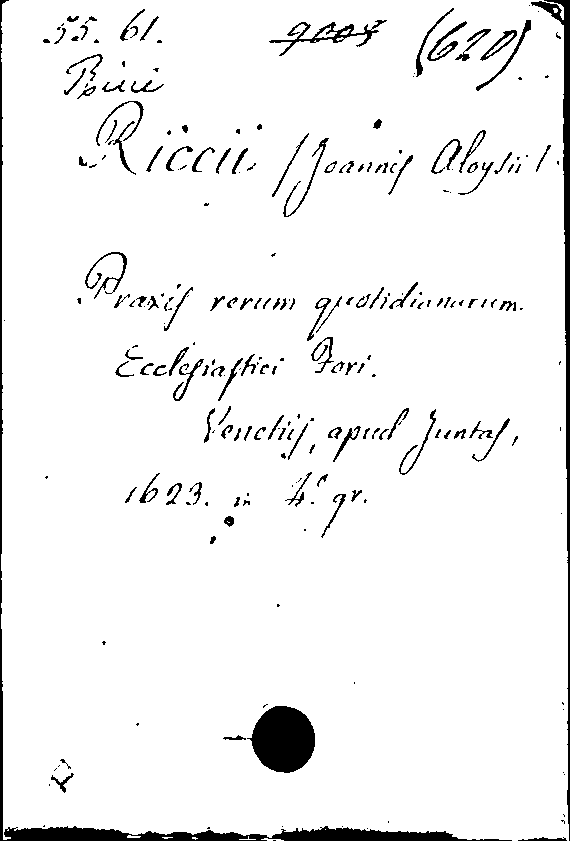 55. 61. 9003 (620)
Riccii /Joannis Aloysii/
Praxis rerum quotidianarum
Ecclesiastici Fori.
Venetiis, apud Juntas,
1623. in 4.° gr.